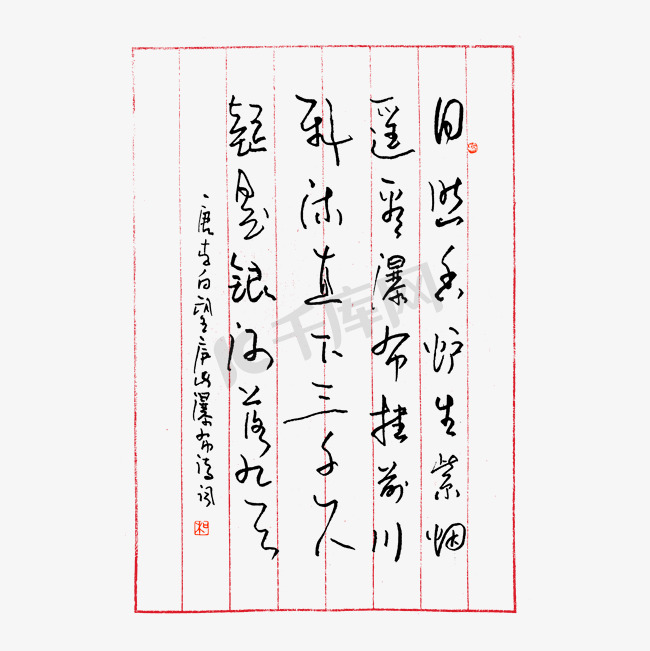 日照香炉生紫烟
遥看瀑布挂前川
飛流直下三千尺
疑是银河落九天
唐李白望庐山瀑布诗词
千库网